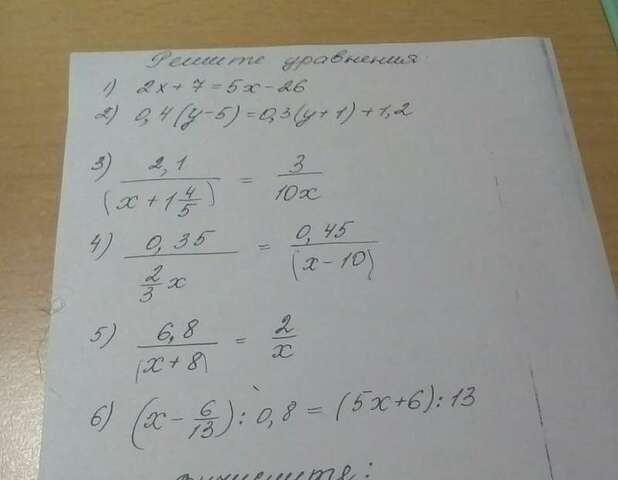 Решите уравнения:
1) 2x + 7 = 5x - 26
2) 0,4(y-5) = 0,3(y+1) + 1,2
3) 2,1 / (x + 1 4/5) = 3 / 10x
4) 0,35 / 2/3 x = 0,45 / (x - 10)
5) 6,8 / (x + 8) = 2 / x
6) (x - 6/13) : 0,8 = (5x+6) : 13